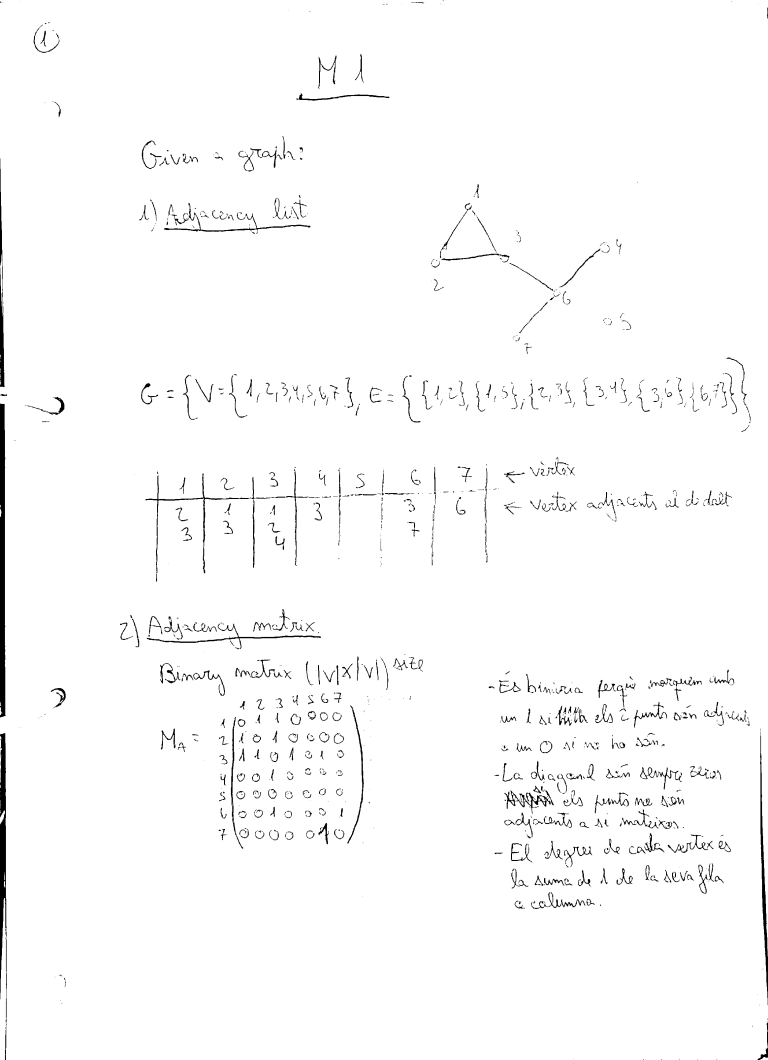 1
M 1
Given a graph:
1) Adjacency list
1
3
4
2
6
5
7
G = {V={1,2,3,4,5,6,7}, E={{1,2},{1,5},{2,3},{3,4},{3,6},{6,7}}}
1 2 3 4 5 6 7 ← vèrtex
2 1 1 3 3 6 ← Vertex adjacents al de dalt
3 3 2 7
4
2) Adjacency matrix.
Binary matrix (|V|x|V|) size
1 2 3 4 5 6 7
1 0 1 1 0 0 0 0
M_A = 2 1 0 1 0 0 0 0
3 1 1 0 1 0 1 0
4 0 0 1 0 0 0 0
5 0 0 0 0 0 0 0
6 0 0 1 0 0 0 1
7 0 0 0 0 0 1 0
- És binària perquè marquem amb
un 1 si els 2 punts són adjacents
o un 0 si no ho són.
- La diagonal són sempre zeros
els punts no són
adjacents a si mateixos.
- El degree de cada vertex és
la suma de 1 de la seva fila
o columna.